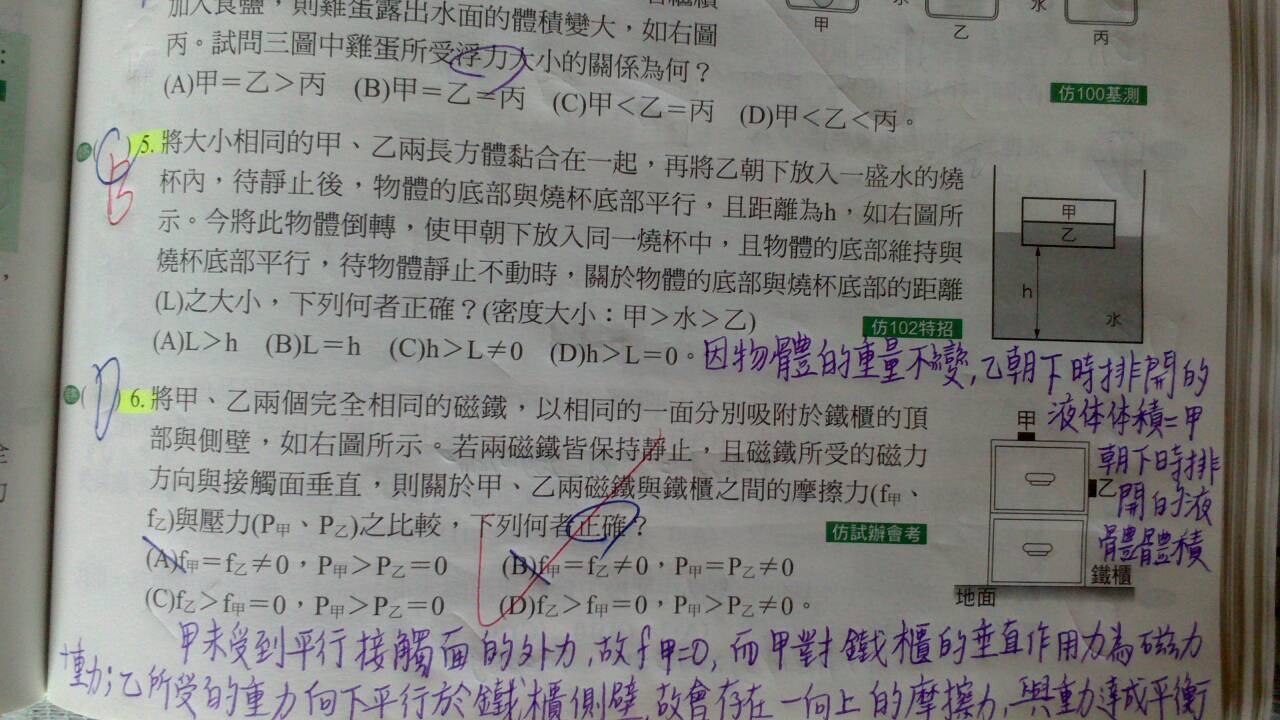 加入食鹽，則雞蛋露出水面的體積變大，如右圖
甲
乙
丙
丙。試問三圖中雞蛋所受浮力大小的關係為何？
(A)甲＝乙＞丙　(B)甲＝乙＝丙　(C)甲＜乙＝丙　(D)甲＜乙＜丙。
仿100基測
B
5. 將大小相同的甲、乙兩長方體黏合在一起，再將乙朝下放入一盛水的燒
杯內，待靜止後，物體的底部與燒杯底部平行，且距離為h，如右圖所
示。今將此物體倒轉，使甲朝下放入同一燒杯中，且物體的底部維持與
燒杯底部平行，待物體靜止不動時，關於物體的底部與燒杯底部的距離
(L)之大小，下列何者正確？(密度大小：甲＞水＞乙)
仿102特招
(A)L＞h　(B)L＝h　(C)h＞L≠0　(D)h＞L＝0。
甲
乙
h
水
因物體的重量不變,乙朝下時排開的
液体体積=甲
朝下時排
開的液
體體積
D
6. 將甲、乙兩個完全相同的磁鐵，以相同的一面分別吸附於鐵櫃的頂
部與側壁，如右圖所示。若兩磁鐵皆保持靜止，且磁鐵所受的磁力
方向與接觸面垂直，則關於甲、乙兩磁鐵與鐵櫃之間的摩擦力(f甲、
f乙)與壓力(P甲、P乙)之比較，下列何者正確？
仿試辦會考
(A)f甲＝f乙≠0，P甲＞P乙＝0　(B)f甲＝f乙≠0，P甲＝P乙≠0
(C)f乙＞f甲＝0，P甲＞P乙＝0　(D)f乙＞f甲＝0，P甲＞P乙≠0。
甲
乙
鐵櫃
地面
甲未受到平行接觸面的外力,故f甲=0,而甲對鐵櫃的垂直作用力為磁力
+重力;乙所受的重力向下平行於鐵櫃側壁,故會存在一向上的摩擦力,與重力達成平衡